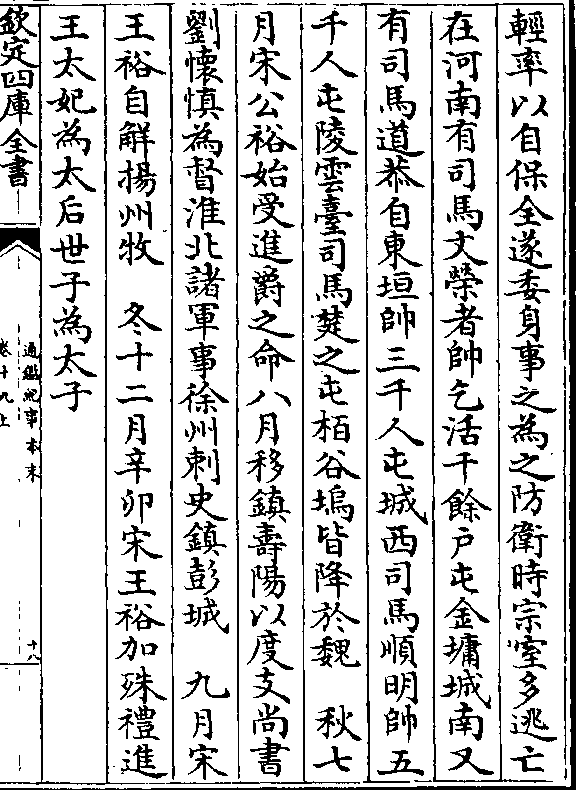 輕率以自保全遂委身事之為之防衛時宗室多逃亡
在河南有司馬文榮者帥乞活千餘戶屯金墉城南又
有司馬道恭自東垣帥三千人屯城西司馬順明帥五
千人屯陵雲臺司馬楚之屯栢谷塢皆降於魏　秋七
月宋公裕始受進爵之命八月移鎮壽陽以度支尚書
劉懷慎為督淮北諸軍事徐州刺史鎮彭城　九月宋
王裕自解揚州牧　冬十二月辛卯宋王裕加殊禮進
王太妃為太后世子為太子
欽定四庫全書
通鑑紀事本末
卷十九上
十八